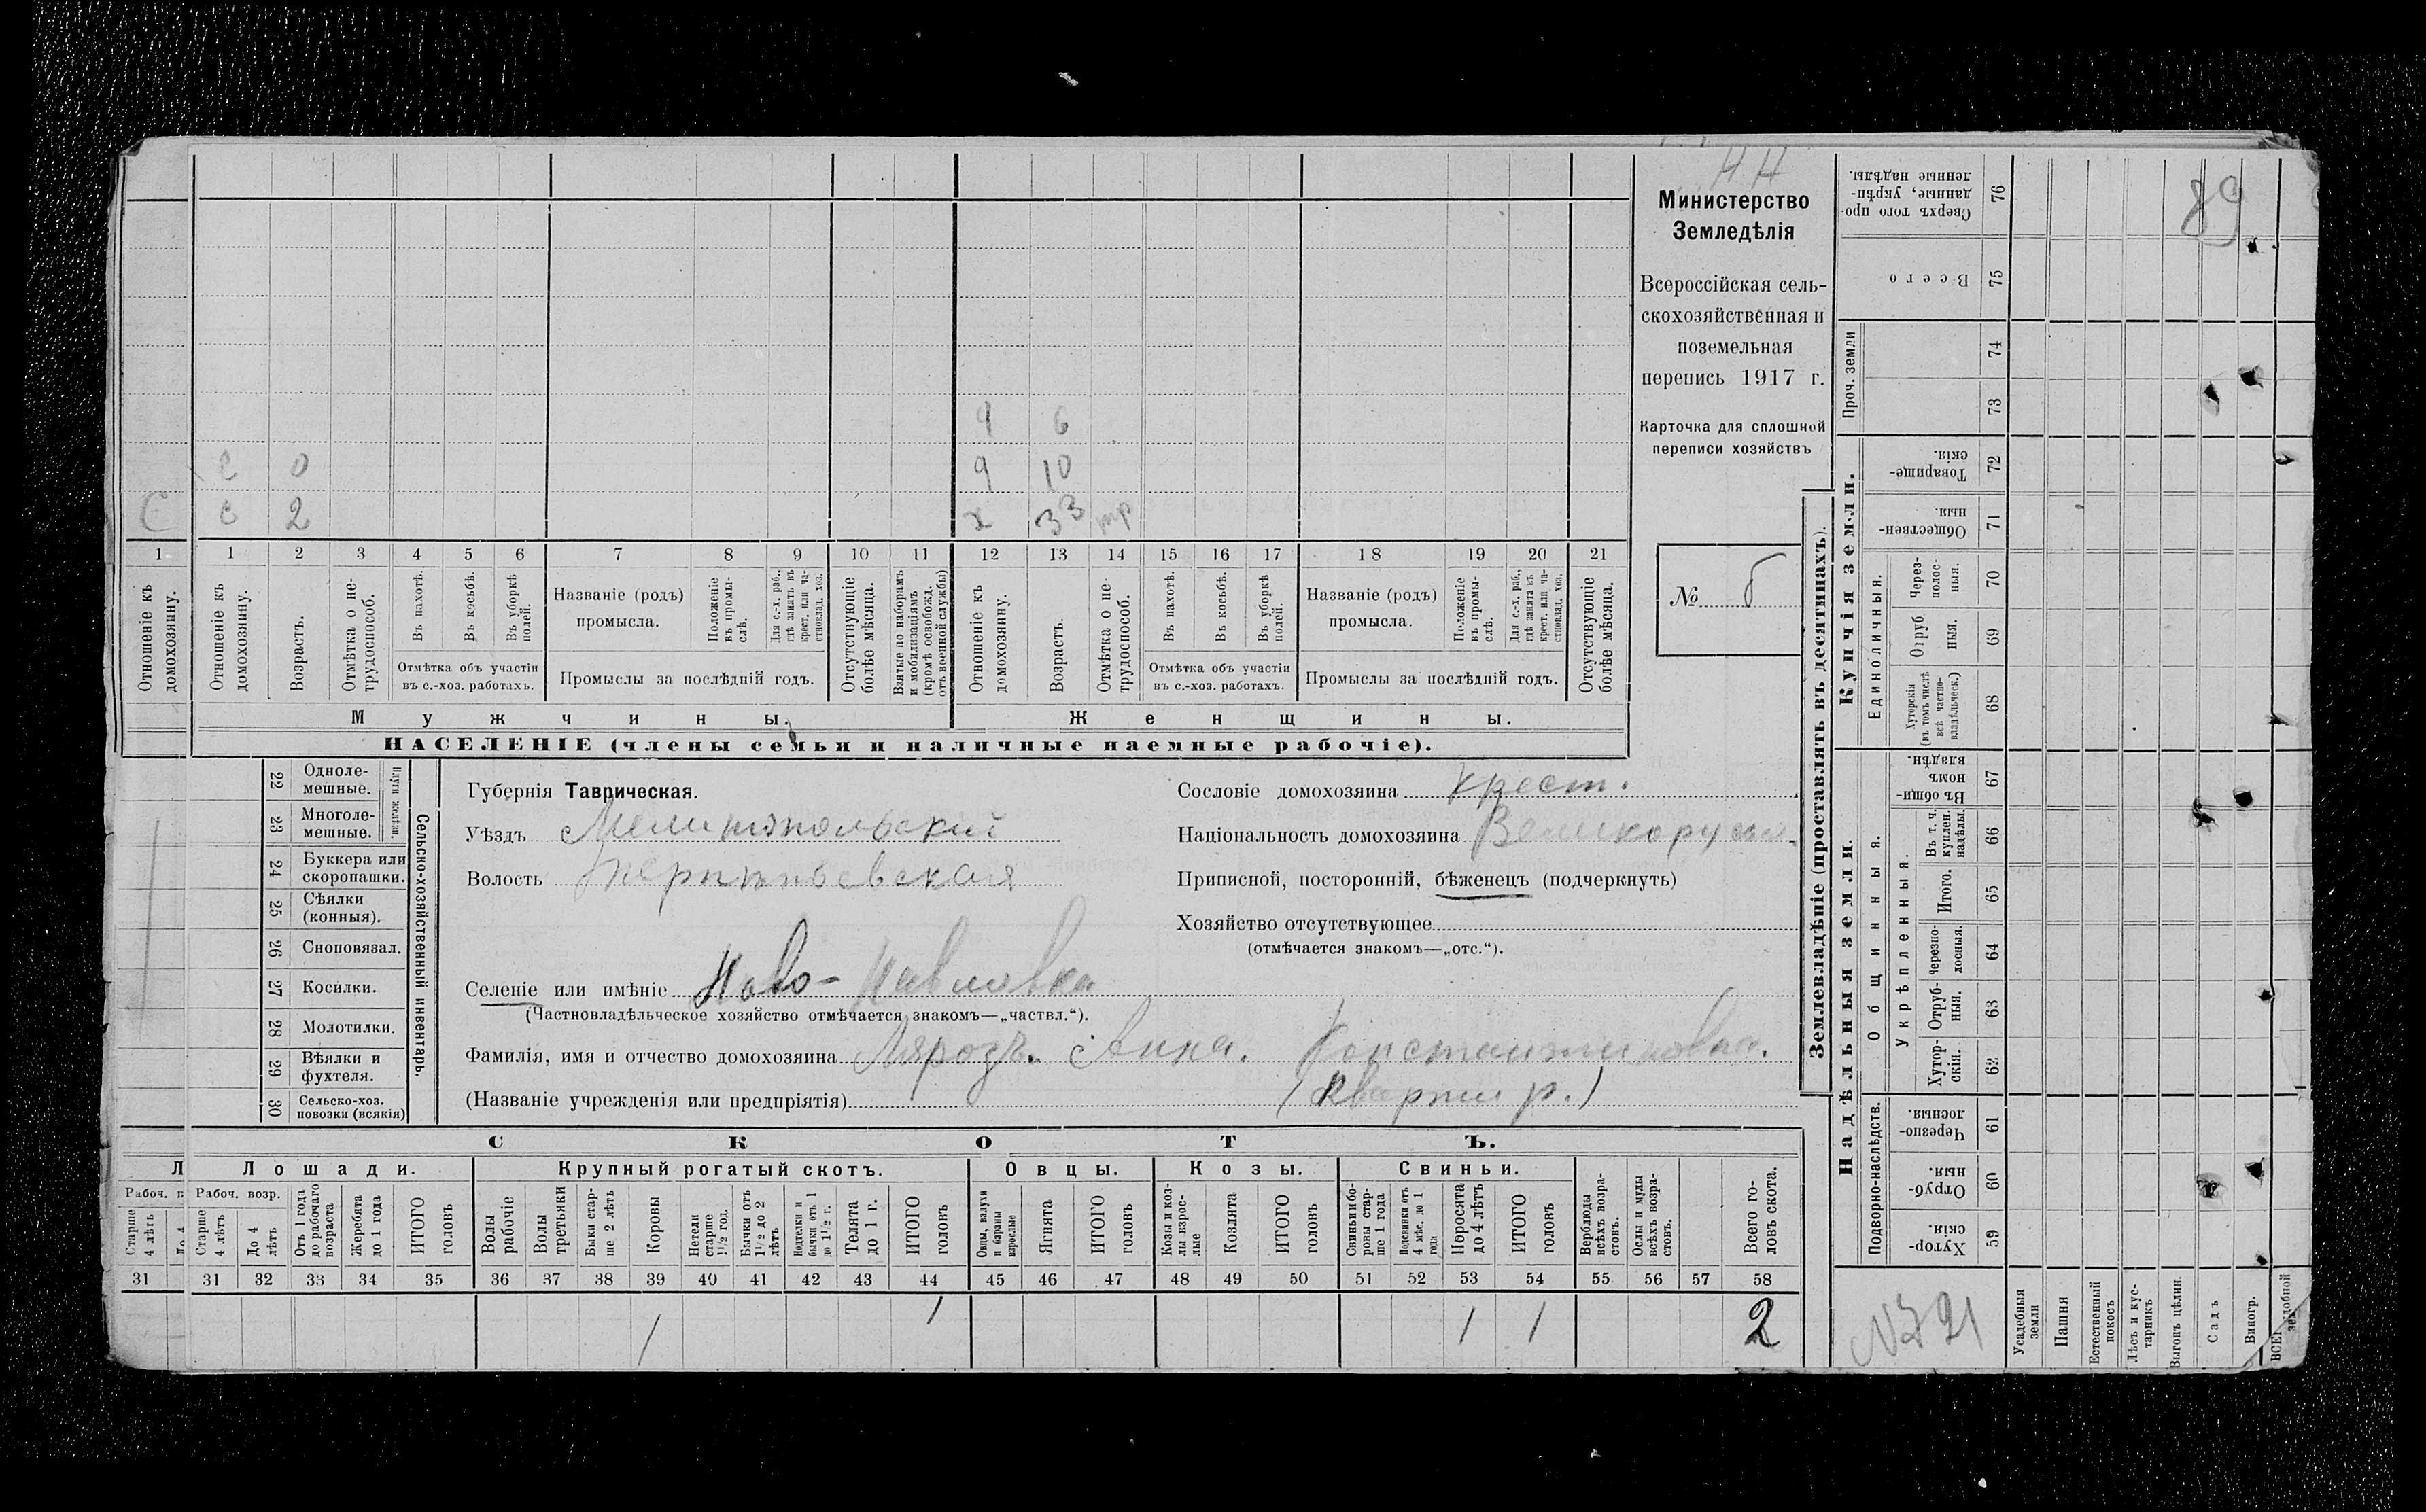 89
Н Н
Министерство
Земледѣлія
Всероссійская сель-
скохозяйственная и
поземельная
перепись 1917 г.
Карточка для сплошной
переписи хозяйствъ
№ б
9 6
с 0 9 10
С с 2 х 33 тр
1 1 2 3 4 5 6 7 8 9 10 11 12 13 14 15 16 17 18 19 20 21
Отношеніе къ домохозяину.
Отношеніе къ домохозяину.
Возрастъ.
Отмѣтка о не-трудоспособ.
Въ пахотѣ.
Въ косьбѣ.
Въ уборкѣ полей.
Отмѣтка объ участіи
въ с.-хоз. работахъ.
Названіе (родъ)
промысла.
Положеніе въ промы-слѣ.
Для с.-х. раб., гдѣ занятъ въ крест. или ча-стновлад. хоз.
Промыслы за послѣдній годъ.
Отсутствующіе болѣе мѣсяца.
Взятые по наборамъ и мобилизаціямъ (кромѣ освобожд. отъ военной службы)
Отношеніе къ домохозяину.
Возрастъ.
Отмѣтка о не-трудоспособ.
Въ пахотѣ.
Въ косьбѣ.
Въ уборкѣ полей.
Отмѣтка объ участіи
въ с.-хоз. работахъ.
Названіе (родъ)
промысла.
Положеніе въ промы-слѣ.
Для с.-х. раб., гдѣ занята въ крест. или ча-стновлад. хоз.
Промыслы за послѣдній годъ.
Отсутствующіе болѣе мѣсяца.
Мужчины. Женщины.
НАСЕЛЕНІЕ (члены семьи и наличные наемные рабочіе).
22 Одноле-мешные.
23 Многоле-мешные.
Плуги желѣзн.
24 Буккера или скоропашки.
25 Сѣялки (конныя).
26 Сноповязал.
27 Косилки.
28 Молотилки.
29 Вѣялки и фухтеля.
30 Сельско-хоз. повозки (всякія)
Сельско-хозяйственный инвентарь.
Губернія Таврическая.
Уѣздъ Мелитопольский
Волость
Селеніе или имѣніе Ново-Павловка
(Частновладѣльческое хозяйство отмѣчается знакомъ—„частвл.“).
Фамилія, имя и отчество домохозяина Анна. Константиновна.
(Названіе учрежденія или предпріятія) (Квартир.)
Сословіе домохозяина крест.
Національность домохозяина
Приписной, посторонній, бѣженецъ (подчеркнуть)
Хозяйство отсутствующее
(отмѣчается знакомъ—„отс.“).
СКОТЪ.
Л Лошади. Крупный рогатый скотъ. Овцы. Козы. Свиньи.
Рабоч. Рабоч. возр.
Старше 4 лѣтъ
Старше 4 лѣтъ
До 4 лѣтъ
Отъ 1 года до рабочаго возраста
Жеребята до 1 года
ИТОГО головъ
Волы рабочіе
Волы третьяки
Быки стар-ше 2 лѣтъ
Коровы
Нетели старше 1½ год.
Бычки отъ 1½ до 2 лѣтъ
Подтелки и бычки отъ 1 до 1½ г.
Телята до 1 г.
ИТОГО головъ
Овцы, валухи и бараны взрослые
Ягнята
ИТОГО головъ
Козы и коз-лы взрос-лые
Козлята
ИТОГО головъ
Свиньи и бо-ровы стар-ше 1 года
Подсвинки отъ 4 мѣс. до 1 года
Поросята до 4 лѣтъ
ИТОГО головъ
Верблюды всѣхъ возра-стовъ.
Ослы и мулы всѣхъ возра-стовъ.
Всего го-ловъ скота.
31 31 32 33 34 35 36 37 38 39 40 41 42 43 44 45 46 47 48 49 50 51 52 53 54 55 56 57 58
1 1 1 1 2
Землевладѣніе (проставлять въ десятинахъ).
Надѣльныя земли. Купчія земли. Проч. земли
Подворно-наслѣдств.
Общинныя.
Укрѣпленныя.
Единоличныя.
59 Хутор-скія.
60 Отруб-ныя.
61 Черезпо-лосныя.
62 Хутор-скія.
63 Отруб-ныя.
64 Черезпо-лосныя.
65 Итого.
66 Въ т. ч. куплен. надѣлы.
67 Въ общи-номъ владѣн.
68 Хуторскія (въ томъ числѣ всѣ частно-владѣльческ.)
69 Отруб ныя.
70 Через-полос-ныя.
71 Обществен-ныя.
72 Товарище-скія.
73
74
75 Всего
76 Сверхъ того про-данные, укрѣп-ленные надѣлы.
Усадебныя земли
Пашня
Естественный покосъ
Лѣсъ и кус-тарникъ
Выгонъ цѣлин.
Садъ
Виногр.